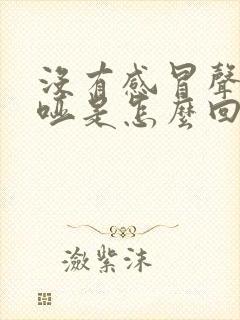 沒有感冒聲
啞是怎麼回
瀲紫沫